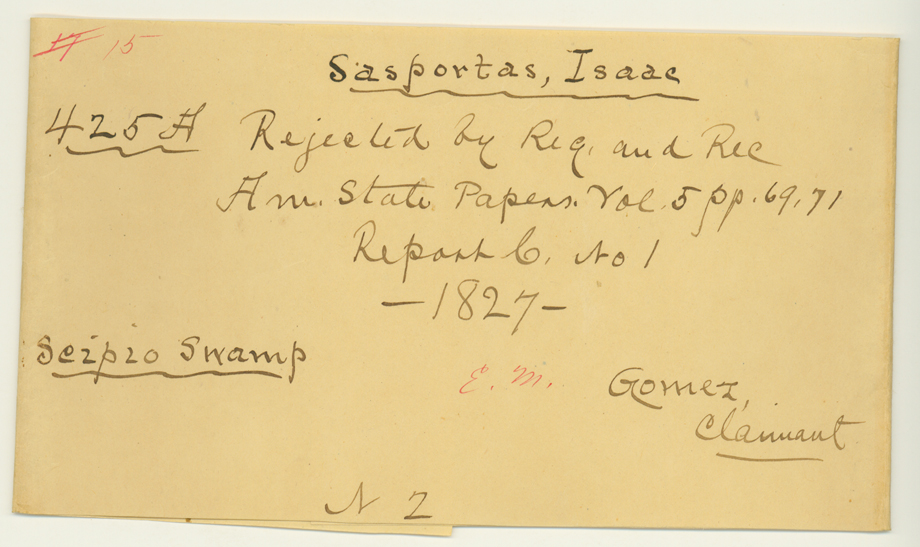 # 15
Sasportas, Isaac
425 A Rejected by Reg. and Rec
Am. State Papers. Vol. 5 pp. 69, 71
Report C. No 1
—1827—
Scipio Swamp
E. M. Gomez,
Claimant
N 2